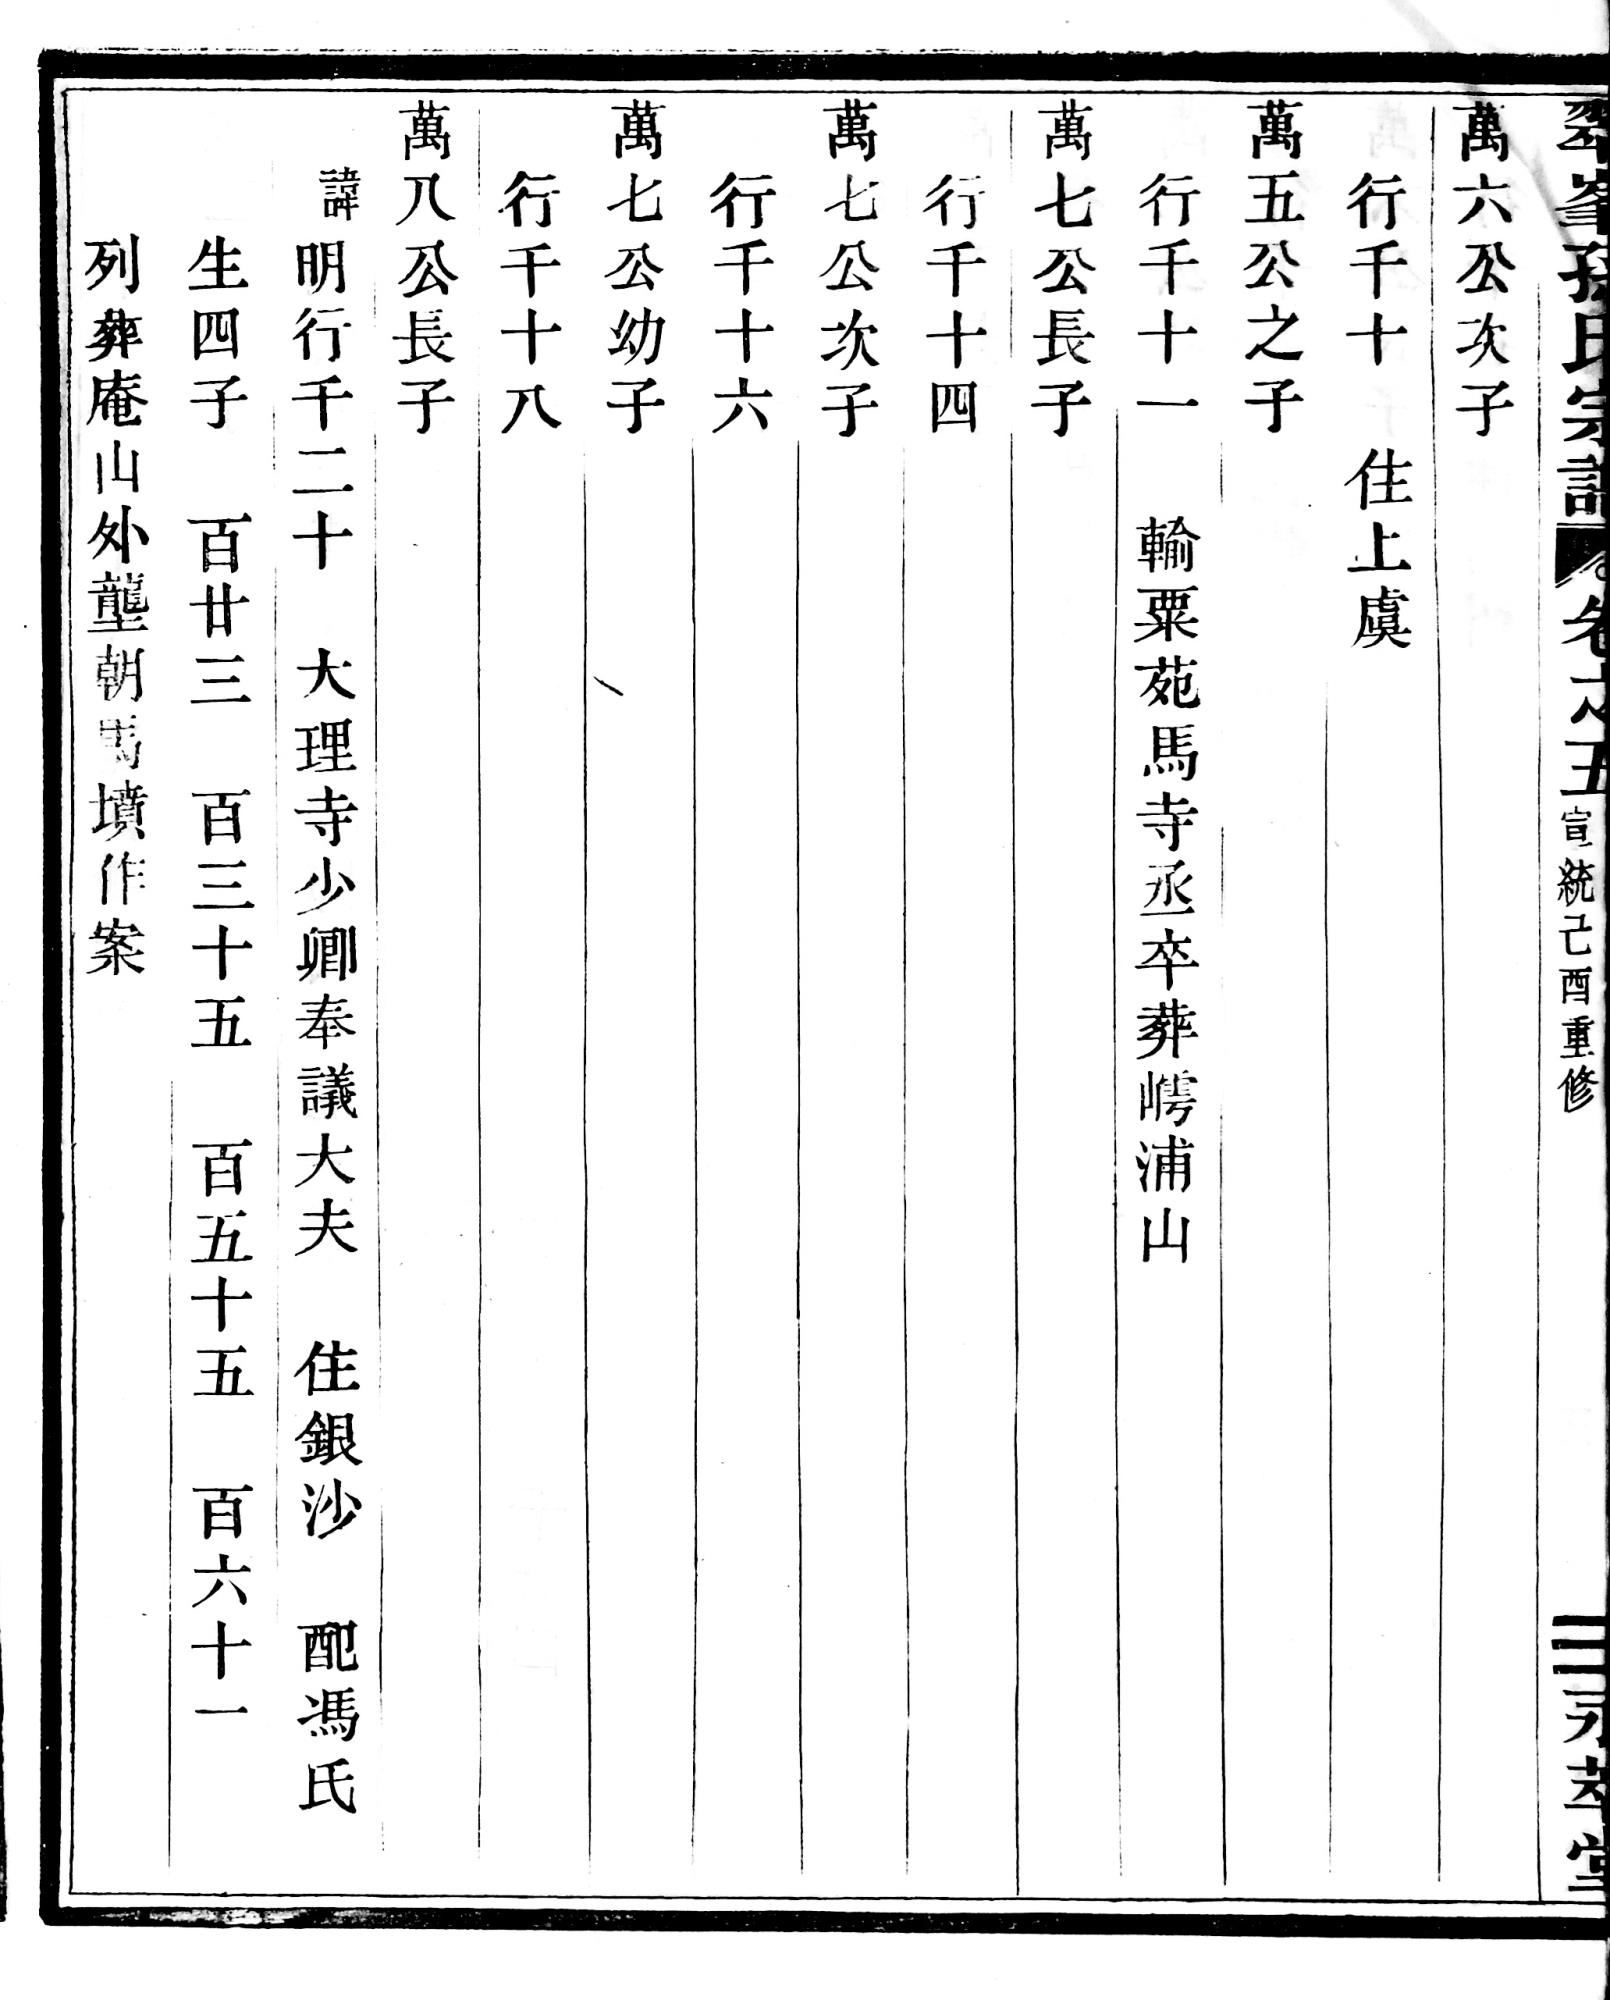 翠峯孫氏宗譜 卷之五 宣統己酉重修 三 永萃堂
萬六公次子
行千十 住上虞
萬五公之子
行千十一 輸粟苑馬寺丞卒葬嶀浦山
萬七公長子
行千十四
萬七公次子
行千十六
萬七公幼子
行千十八
萬八公長子
諱明行千二十 大理寺少卿奉議大夫 住銀沙 配馮氏
生四子 百廿三 百三十五 百五十五 百六十一
列葬庵山外壟朝馬墳作案